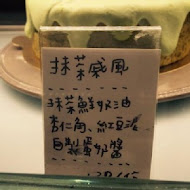 抹茶戚風
抹茶鮮奶油
杏仁角、紅豆泥
自製蜜奶醬